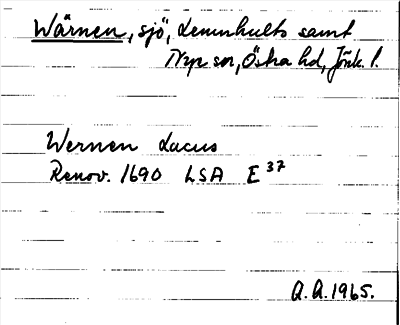 Wärnen, sjö, Lemnhults samt
Nye sn, Östra hd, Jönk. l.
Wernen Lacus
Renov. 1690 LSA E 37
A. A. 1965.